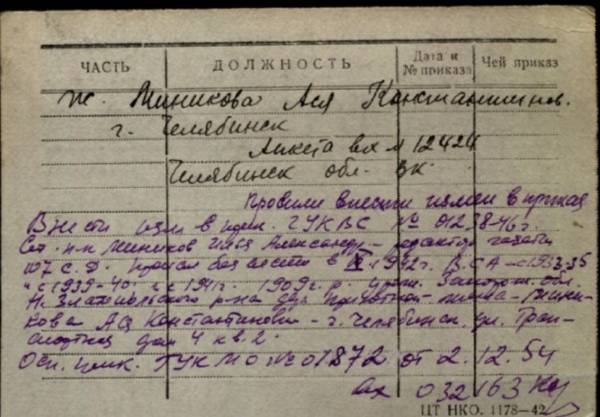 ЧАСТЬ ДОЛЖНОСТЬ Дата и № приказа Чей приказ
ж. Миникова Ася Константинов.
г. Челябинск
Анкета вх № 12424
Челябинск обл. ВК.
Просили внести измен в приказ
Внести изм в прик. ГУКВС № 01238-46 г.
Ст. п-к Миников Илья Александр – редактор газеты
107 С.Д. пропал без вести в 1942 г. В СА – с 1933-35
и с 1939-40 г. с 1941 г. 1909 г. р. урож. Запорож. обл.
Н. Златопольского р-на жена – Мини-
кова Ася Константинов – г. Челябинск. ул. Тран-
спортная дом 4 кв. 2.
Осн. прик. ГУК МО № 01872 от 2.12.54
вх 032163
ЦТ НКО. 1178-42